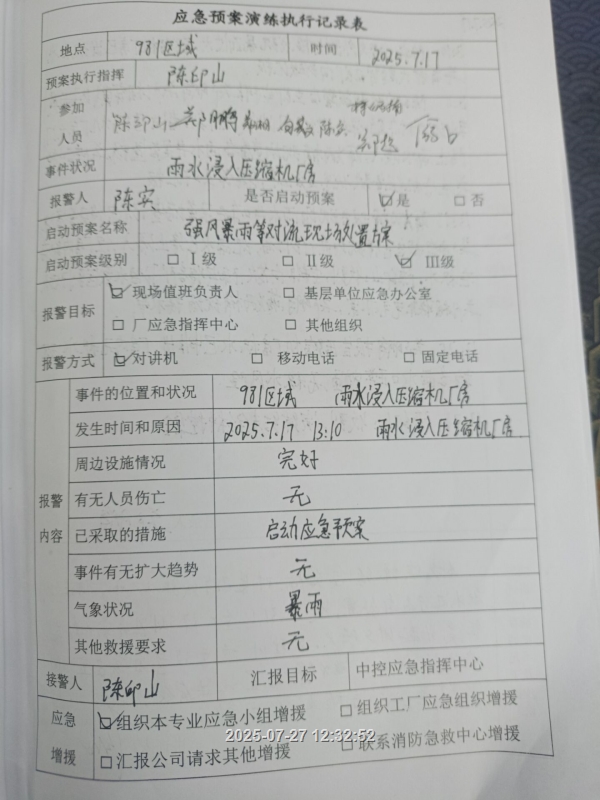 应急预案演练执行记录表
地点 981区域 时间 2025.7.17
预案执行指挥 陈印山
参加人员 陈印山
事件状况 雨水浸入压缩机厂房
报警人 陈实 是否启动预案 ☑是 □否
启动预案名称 强风暴雨等对流现场处置方案
启动预案级别 □Ⅰ级 □Ⅱ级 ☑Ⅲ级
报警目标 ☑现场值班负责人 □基层单位应急办公室
□厂应急指挥中心 □其他组织
报警方式 ☑对讲机 □移动电话 □固定电话
报警内容 事件的位置和状况 981区域 雨水浸入压缩机厂房
发生时间和原因 2025.7.17 13:10 雨水浸入压缩机厂房
周边设施情况 完好
有无人员伤亡 无
已采取的措施 启动应急预案
事件有无扩大趋势 无
气象状况 暴雨
其他救援要求 无
接警人 陈印山 汇报目标 中控应急指挥中心
应急增援 ☑组织本专业应急小组增援 □组织工厂应急组织增援
□汇报公司请求其他增援 □联系消防急救中心增援
2025-07-27 12:32:52